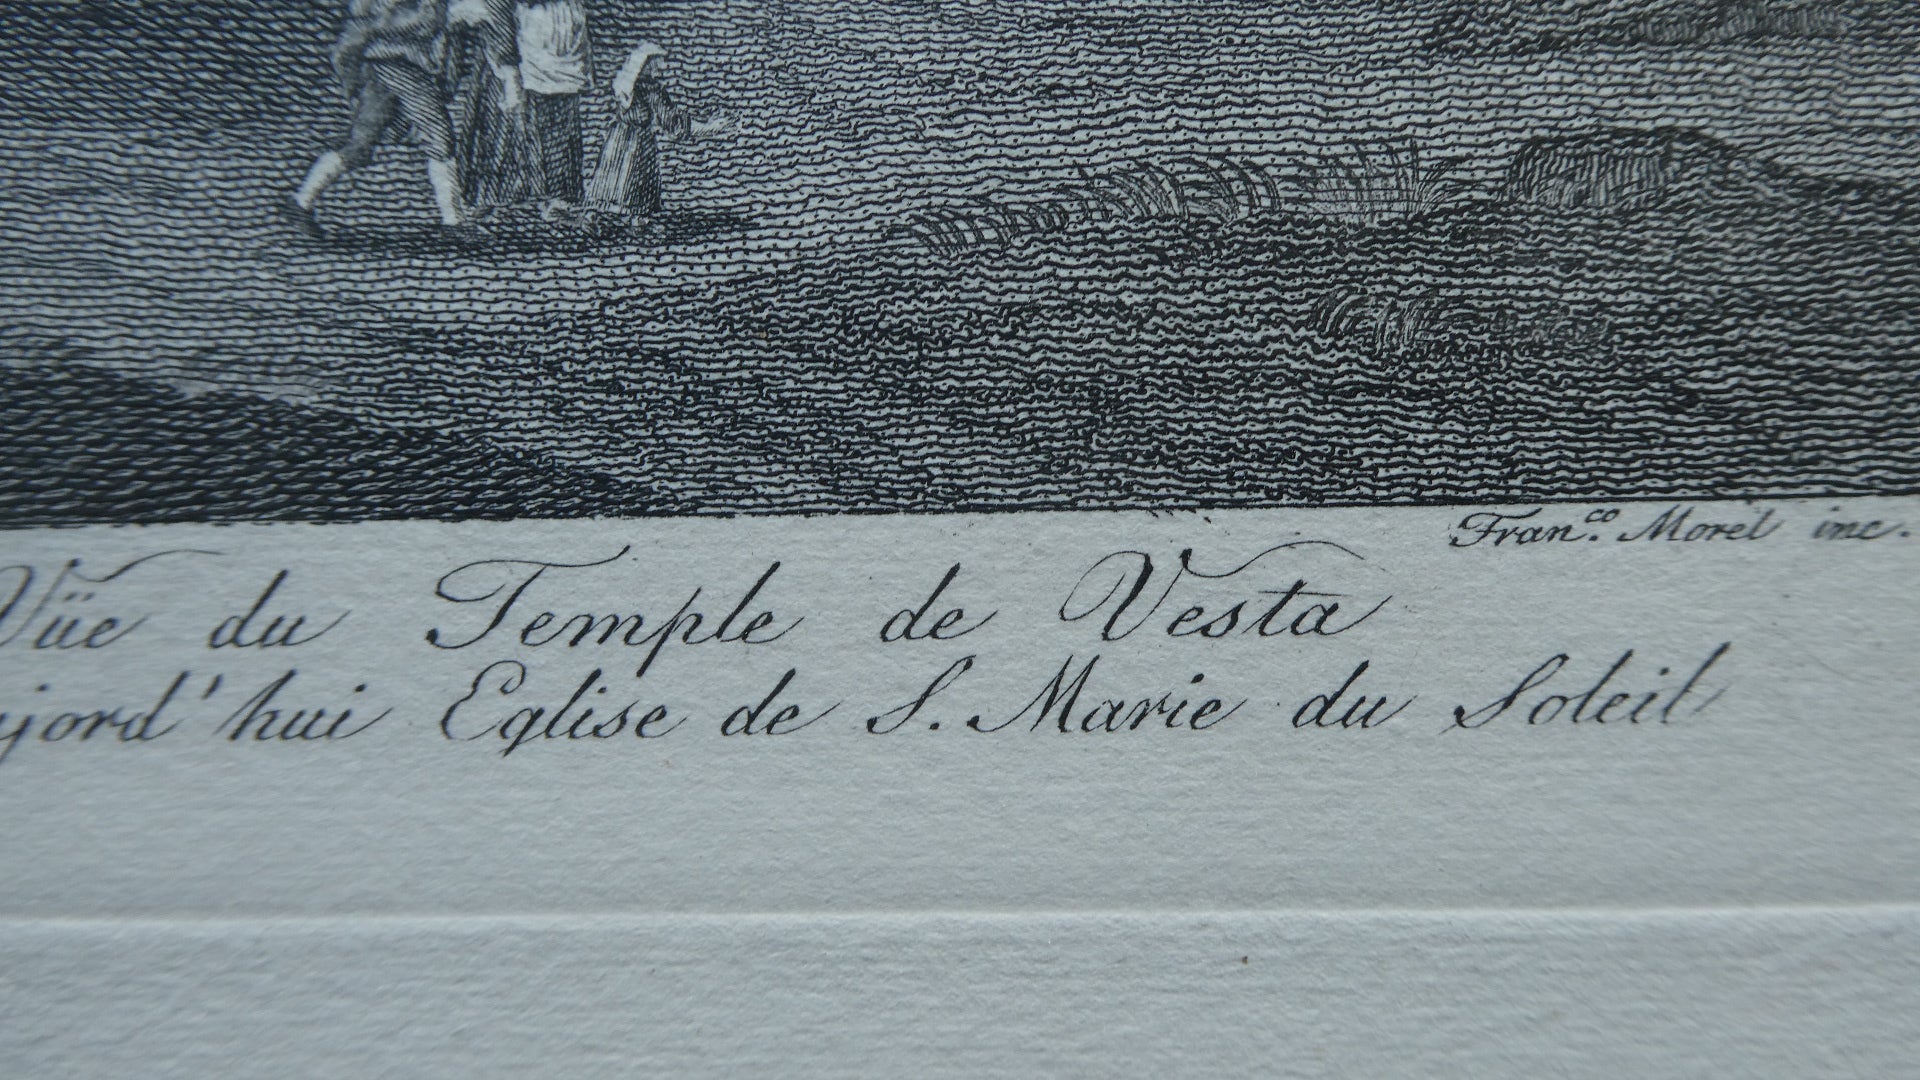 Fran.co Morel inc.
Vüe du Temple de Vesta
ujord'hui Eglise de S. Marie du Soleil